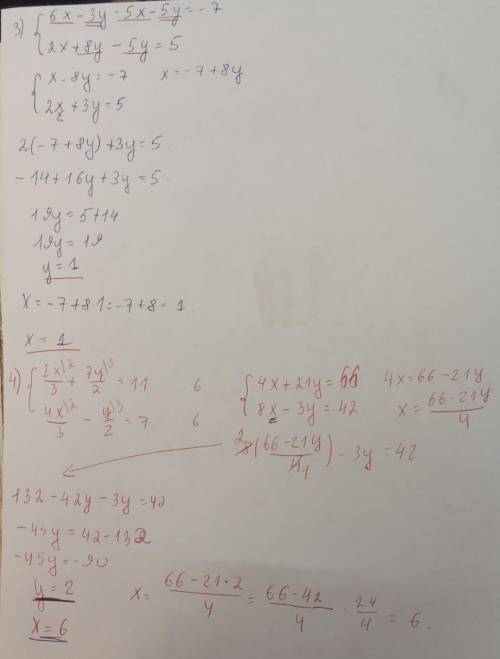 3) { 6x - 3y - 5x - 5y = -7
2x + 8y - 5y = 5
{ x - 8y = -7    x = -7 + 8y
2x + 3y = 5
2(-7 + 8y) + 3y = 5.
-14 + 16y + 3y = 5.
19y = 5 + 14
19y = 19
y = 1
x = -7 + 8·1 = -7 + 8 = 1.
x = 1
4) { 2x/3 |2 + 7y/2 |3 = 11    6    { 4x + 21y = 66    4x = 66 - 21y
4x/3 |2 - y/2 |3 = 7    6    8x - 3y = 42.    x = (66 - 21y)/4
2 8((66 - 21y)/4 1) - 3y = 42
132 - 42y - 3y = 42
-45y = 42 - 132
-45y = -90
y = 2    x = (66 - 21·2)/4 = (66 - 42)/4 · 24/4 = 6.
x = 6